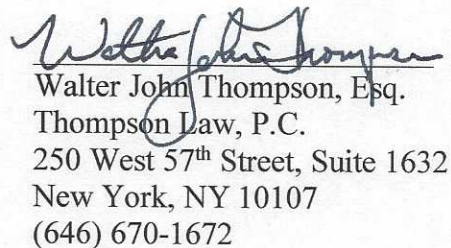 Walter John Thompson
Walter John Thompson, Esq.
Thompson Law, P.C.
250 West 57th Street, Suite 1632
New York, NY 10107
(646) 670-1672